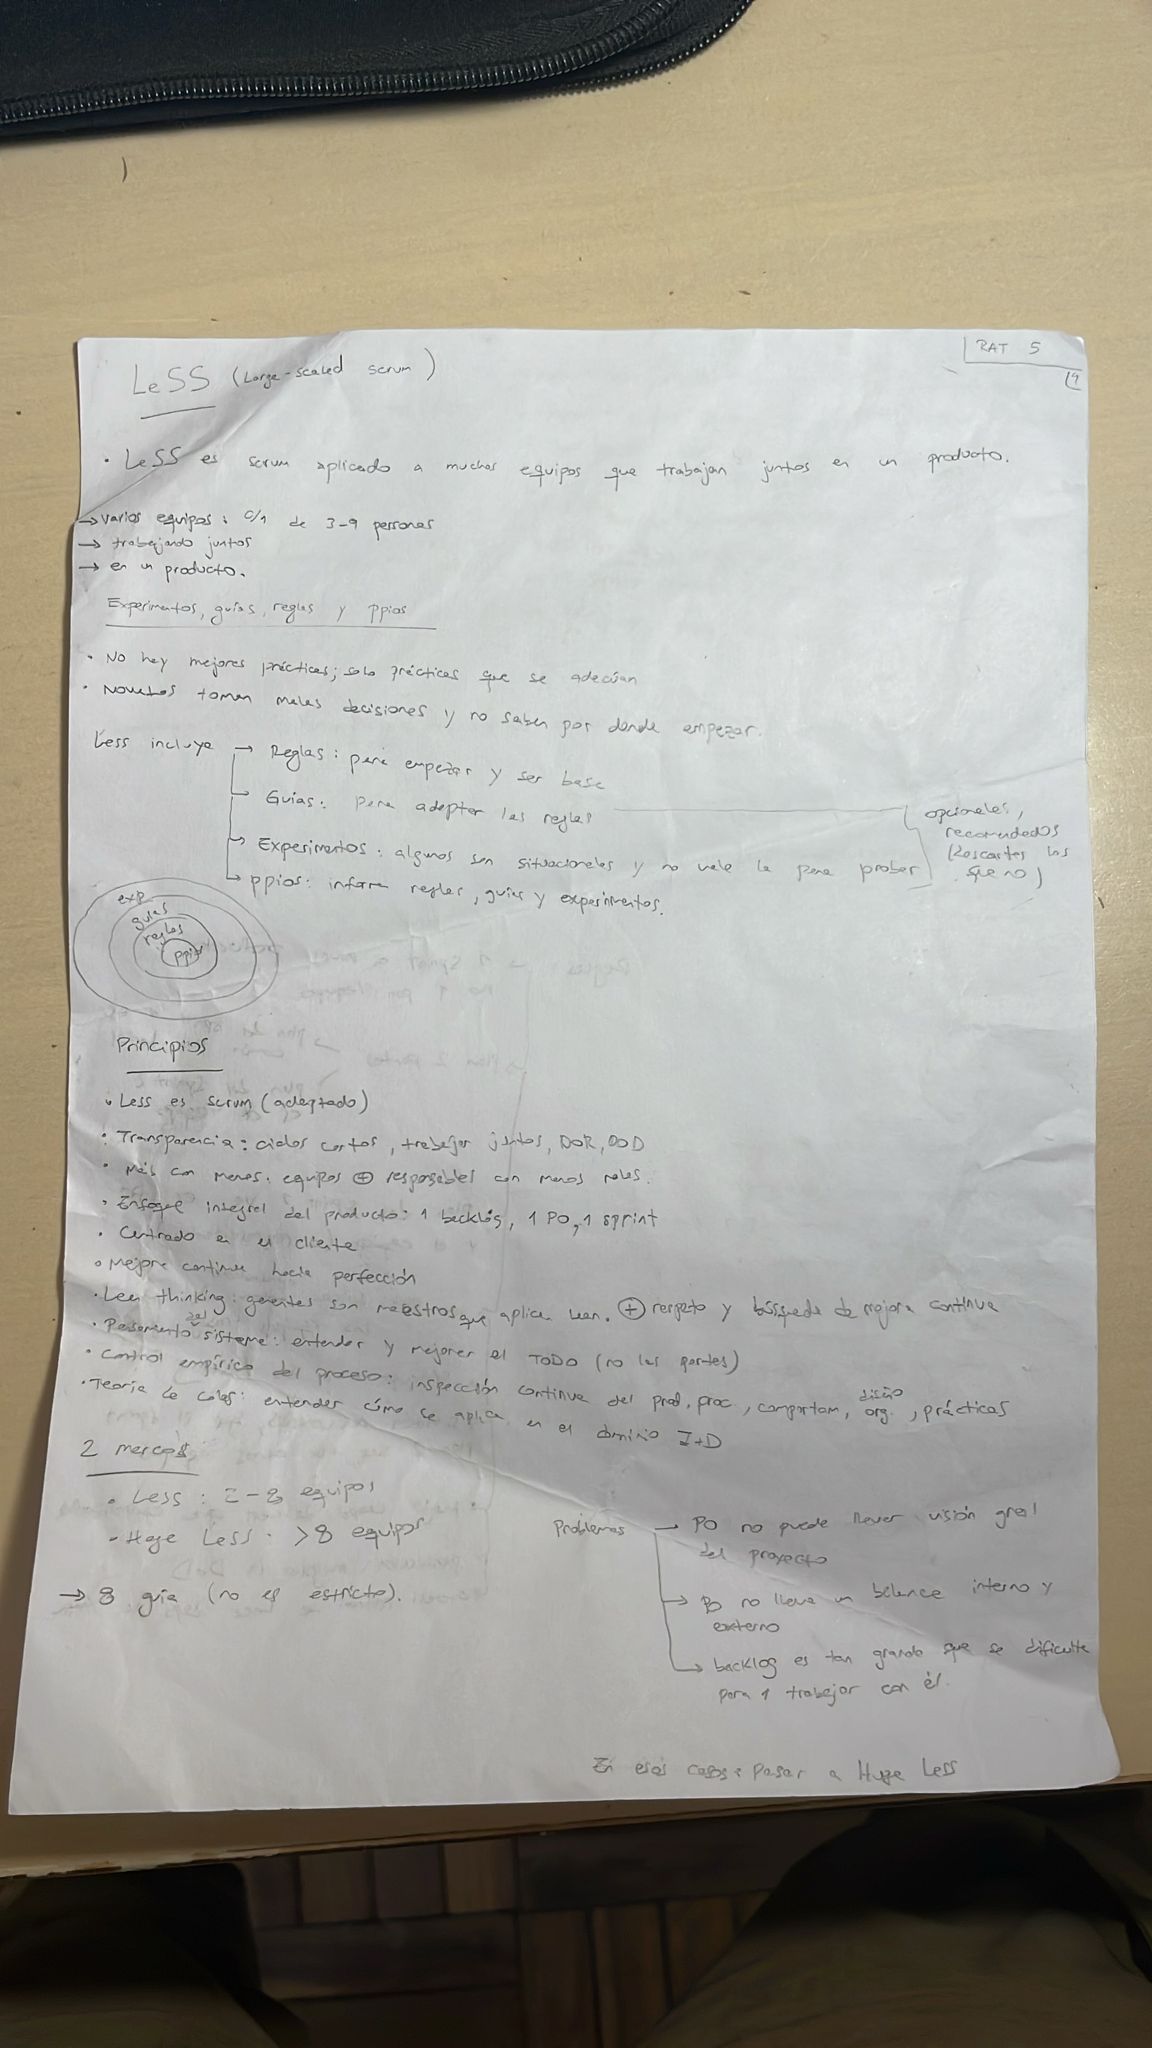 RAT 5
LeSS (Large-scaled scrum)
• LeSS es scrum aplicado a muchos equipos que trabajan juntos en un producto.
→ varios equipos: c/1 de 3-9 personas
→ trabajando juntos
→ en un producto.
Experimentos, guías, reglas y ppios
• No hay mejores prácticas; solo prácticas que se adecúan
• Novatos toman malas decisiones y no saben por donde empezar.
Less incluye → Reglas: para empezar y ser base
Guías: para adaptar las reglas
→ Experimentos: algunos son situacionales y no vale la pena probar
opcionales,
recomendados
(Descartes los
que no)
→ ppios: informan reglas, guías y experimentos.
exp
guías
reglas
ppios
Principios
• Less es scrum (adaptado)
• Transparencia: ciclos cortos, trabajar juntos, DOR, DOD
• Más con menos: equipos ⊕ responsables con menos roles.
• Enfoque integral del producto: 1 backlog, 1 PO, 1 sprint
• Centrado en el cliente
• Mejora continua hacia perfección
• Lean thinking: gerentes son maestros que aplican lean. ⊕ respeto y búsqueda de mejora continua
• Pensamiento del sistema: entender y mejorar el TODO (no las partes)
• Control empírico del proceso: inspección continua del prod, proc, comportam, diseño org., prácticas
• Teoría de colas: entender cómo se aplica en el dominio I+D
2 marcos
• Less: 2-8 equipos
• Huge Less: >8 equipos
→ 8 guía (no es estricto).
Problemas → PO no puede llevar visión gral
del proyecto
→ PO no lleva un balance interno y
externo
→ backlog es tan grande que se dificulta
para 1 trabajar con él.
En esos casos: pasar a Huge Less